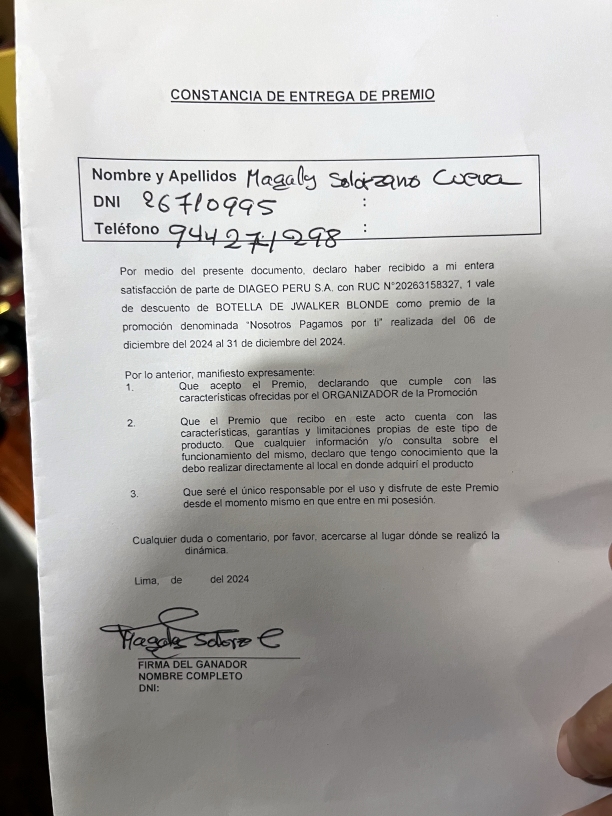 CONSTANCIA DE ENTREGA DE PREMIO
Nombre y Apellidos Magaly Solorzano Cueva
DNI 26710995 :
Teléfono 944271298 :
Por medio del presente documento, declaro haber recibido a mi entera
satisfacción de parte de DIAGEO PERU S.A. con RUC N°20263158327, 1 vale
de descuento de BOTELLA DE JWALKER BLONDE como premio de la
promoción denominada "Nosotros Pagamos por ti" realizada del 06 de
diciembre del 2024 al 31 de diciembre del 2024.
Por lo anterior, manifiesto expresamente:
1. Que acepto el Premio, declarando que cumple con las
características ofrecidas por el ORGANIZADOR de la Promoción
2. Que el Premio que recibo en este acto cuenta con las
características, garantías y limitaciones propias de este tipo de
producto. Que cualquier información y/o consulta sobre el
funcionamiento del mismo, declaro que tengo conocimiento que la
debo realizar directamente al local en donde adquirí el producto
3. Que seré el único responsable por el uso y disfrute de este Premio
desde el momento mismo en que entre en mi posesión.
Cualquier duda o comentario, por favor, acercarse al lugar dónde se realizó la
dinámica.
Lima, de del 2024
Magaly Solorz C
FIRMA DEL GANADOR
NOMBRE COMPLETO
DNI: